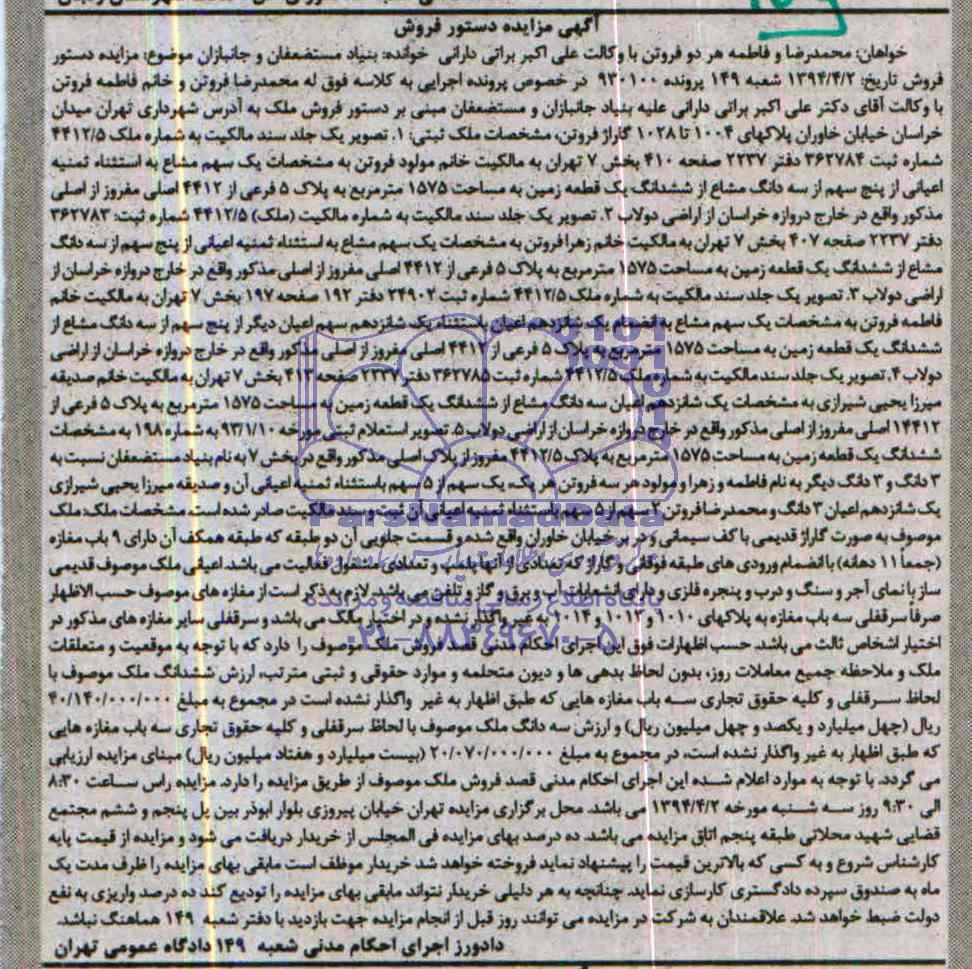 آگهی مزایده دستور فروش
خواهان: محمدرضا و فاطمه هر دو فروتن با وکالت علی اکبر براتی دارانی خوانده: بنیاد مستضعفان و جانبازان موضوع: مزایده دستور
فروش تاریخ: ۱۳۹۴/۴/۲ شعبه ۱۴۹ پرونده ۹۳۰۱۰۰ در خصوص پرونده اجرایی به کلاسه فوق له محمدرضا فروتن و خانم فاطمه فروتن
با وکالت آقای دکتر علی اکبر براتی دارانی علیه بنیاد جانبازان و مستضعفان مبنی بر دستور فروش ملک به آدرس شهرداری تهران میدان
خراسان خیابان خاوران پلاکهای ۱۰۰۴ تا ۱۰۲۸ گاراژ فروتن، مشخصات ملک ثبتی: ۱. تصویر یک جلد سند مالکیت به شماره ملک ۴۴۱۲/۵
شماره ثبت ۳۶۲۷۸۴ دفتر ۲۲۳۷ صفحه ۴۱۰ بخش ۷ تهران به مالکیت خانم مولود فروتن به مشخصات یک سهم مشاع به استثناء ثمنیه
اعیانی از پنج سهم از سه دانگ مشاع از ششدانگ یک قطعه زمین به مساحت ۱۵۷۵ مترمربع به پلاک ۵ فرعی از ۴۴۱۲ اصلی مفروز از اصلی
مذکور واقع در خارج دروازه خراسان از اراضی دولاب ۲. تصویر یک جلد سند مالکیت به شماره مالکیت (ملک) ۴۴۱۲/۵ شماره ثبت: ۳۶۲۷۸۳
دفتر ۲۲۳۷ صفحه ۴۰۷ بخش ۷ تهران به مالکیت خانم زهرا فروتن به مشخصات یک سهم مشاع به استثناء ثمنیه اعیانی از پنج سهم از سه دانگ
مشاع از ششدانگ یک قطعه زمین به مساحت ۱۵۷۵ مترمربع به پلاک ۵ فرعی از ۴۴۱۲ اصلی مفروز از اصلی مذکور واقع در خارج دروازه خراسان از
اراضی دولاب ۳. تصویر یک جلد سند مالکیت به شماره ملک ۴۴۱۲/۵ شماره ثبت ۳۴۹۰۲ دفتر ۱۹۲ صفحه ۱۹۷ بخش ۷ تهران به مالکیت خانم
فاطمه فروتن به مشخصات یک سهم مشاع به انضمام یک شانزدهم اعیان باستثناء یک شانزدهم سهم اعیان دیگر از پنج سهم از سه دانگ مشاع از
ششدانگ یک قطعه زمین به مساحت ۱۵۷۵ مترمربع به پلاک ۵ فرعی از ۴۴۱۲ اصلی مفروز از اصلی مذکور واقع در خارج دروازه خراسان از اراضی
دولاب ۴. تصویر یک جلد سند مالکیت به شماره ملک ۴۴۱۲/۵ شماره ثبت ۳۶۲۷۸۵ دفتر ۲۲۳۷ صفحه ۴۱۳ بخش ۷ تهران به مالکیت خانم صدیقه
میرزا یحیی شیرازی به مشخصات یک شانزدهم اعیان سه دانگ مشاع از ششدانگ یک قطعه زمین به مساحت ۱۵۷۵ مترمربع به پلاک ۵ فرعی از
۱۴۴۱۲ اصلی مفروز از اصلی مذکور واقع در خارج دروازه خراسان از اراضی دولاب ۵. تصویر استعلام ثبتی مورخه ۹۳/۱/۱۰ به شماره ۱۹۸ به مشخصات
ششدانگ یک قطعه زمین به مساحت ۱۵۷۵ مترمربع به پلاک ۴۴۱۲/۵ مفروز از پلاک اصلی مذکور واقع در بخش ۷ به نام بنیاد مستضعفان نسبت به
۳ دانگ و ۳ دانگ دیگر به نام فاطمه و زهرا و مولود هر سه فروتن هر یک، یک سهم از ۵ سهم باستثناء ثمنیه اعیانی آن و صدیقه میرزا یحیی شیرازی
یک شانزدهم اعیان ۳ دانگ و محمدرضا فروتن ۲ سهم از ۵ سهم باستثناء ثمنیه اعیانی آن ثبت و سند مالکیت صادر شده است. مشخصات ملک: ملک
موصوف به صورت گاراژ قدیمی با کف سیمانی و در بر خیابان خاوران واقع شده و قسمت جلویی آن دو طبقه که طبقه همکف آن دارای ۹ باب مغازه
(جمعاً ۱۱ دهانه) با انضمام ورودی های طبقه فوقانی و گاراژ که تعدادی از آنها پلمپ و تعدادی مشغول فعالیت می باشد. اعیانی ملک موصوف قدیمی
ساز با نمای آجر و سنگ و درب و پنجره فلزی و دارای انشعابات آب و برق و گاز و تلفن می باشد. لازم به ذکر است از مغازه های موصوف حسب الاظهار
صرفاً سرقفلی سه باب مغازه به پلاکهای ۱۰۱۰ و ۱۰۱۲ و ۱۰۱۴ به غیر واگذار نشده و در اختیار مالک می باشد و سرقفلی سایر مغازه های مذکور در
اختیار اشخاص ثالث می باشد. حسب اظهارات فوق این اجرای احکام مدنی قصد فروش ملک موصوف را دارد که با توجه به موقعیت و متعلقات
ملک و ملاحظه جمیع معاملات روز، بدون لحاظ بدهی ها و دیون متحلمه و موارد حقوقی و ثبتی مترتب، ارزش ششدانگ ملک موصوف با
لحاظ سرقفلی و کلیه حقوق تجاری سه باب مغازه هایی که طبق اظهار به غیر واگذار نشده است در مجموع به مبلغ ۴۰/۱۴۰/۰۰۰/۰۰۰
ریال (چهل میلیارد و یکصد و چهل میلیون ریال) و ارزش سه دانگ ملک موصوف با لحاظ سرقفلی و کلیه حقوق تجاری سه باب مغازه هایی
که طبق اظهار به غیر واگذار نشده است، در مجموع به مبلغ ۲۰/۰۷۰/۰۰۰/۰۰۰ (بیست میلیارد و هفتاد میلیون ریال) مبنای مزایده ارزیابی
می گردد. با توجه به موارد اعلام شده این اجرای احکام مدنی قصد فروش ملک موصوف از طریق مزایده را دارد. مزایده راس ساعت ۸:۳۰
الی ۹:۳۰ روز سه شنبه مورخه ۱۳۹۴/۴/۲ می باشد. محل برگزاری مزایده تهران خیابان پیروزی بلوار ابوذر بین پل پنجم و ششم مجتمع
قضایی شهید محلاتی طبقه پنجم اتاق مزایده می باشد. ده درصد بهای مزایده فی المجلس از خریدار دریافت می شود و مزایده از قیمت پایه
کارشناس شروع و به کسی که بالاترین قیمت را پیشنهاد نماید فروخته خواهد شد خریدار موظف است مابقی بهای مزایده را ظرف مدت یک
ماه به صندوق سپرده دادگستری کارسازی نماید. چنانچه به هر دلیلی خریدار نتواند مابقی بهای مزایده را تودیع کند ده درصد واریزی به نفع
دولت ضبط خواهد شد. علاقمندان به شرکت در مزایده می توانند روز قبل از انجام مزایده جهت بازدید با دفتر شعبه ۱۴۹ هماهنگ نباشد.
دادورز اجرای احکام مدنی شعبه ۱۴۹ دادگاه عمومی تهران
ParsNamadData
پایگاه اطلاع رسانی مناقصه و مزایده
۰۲۱-۸۸۳۴۹۶۷۰-۵